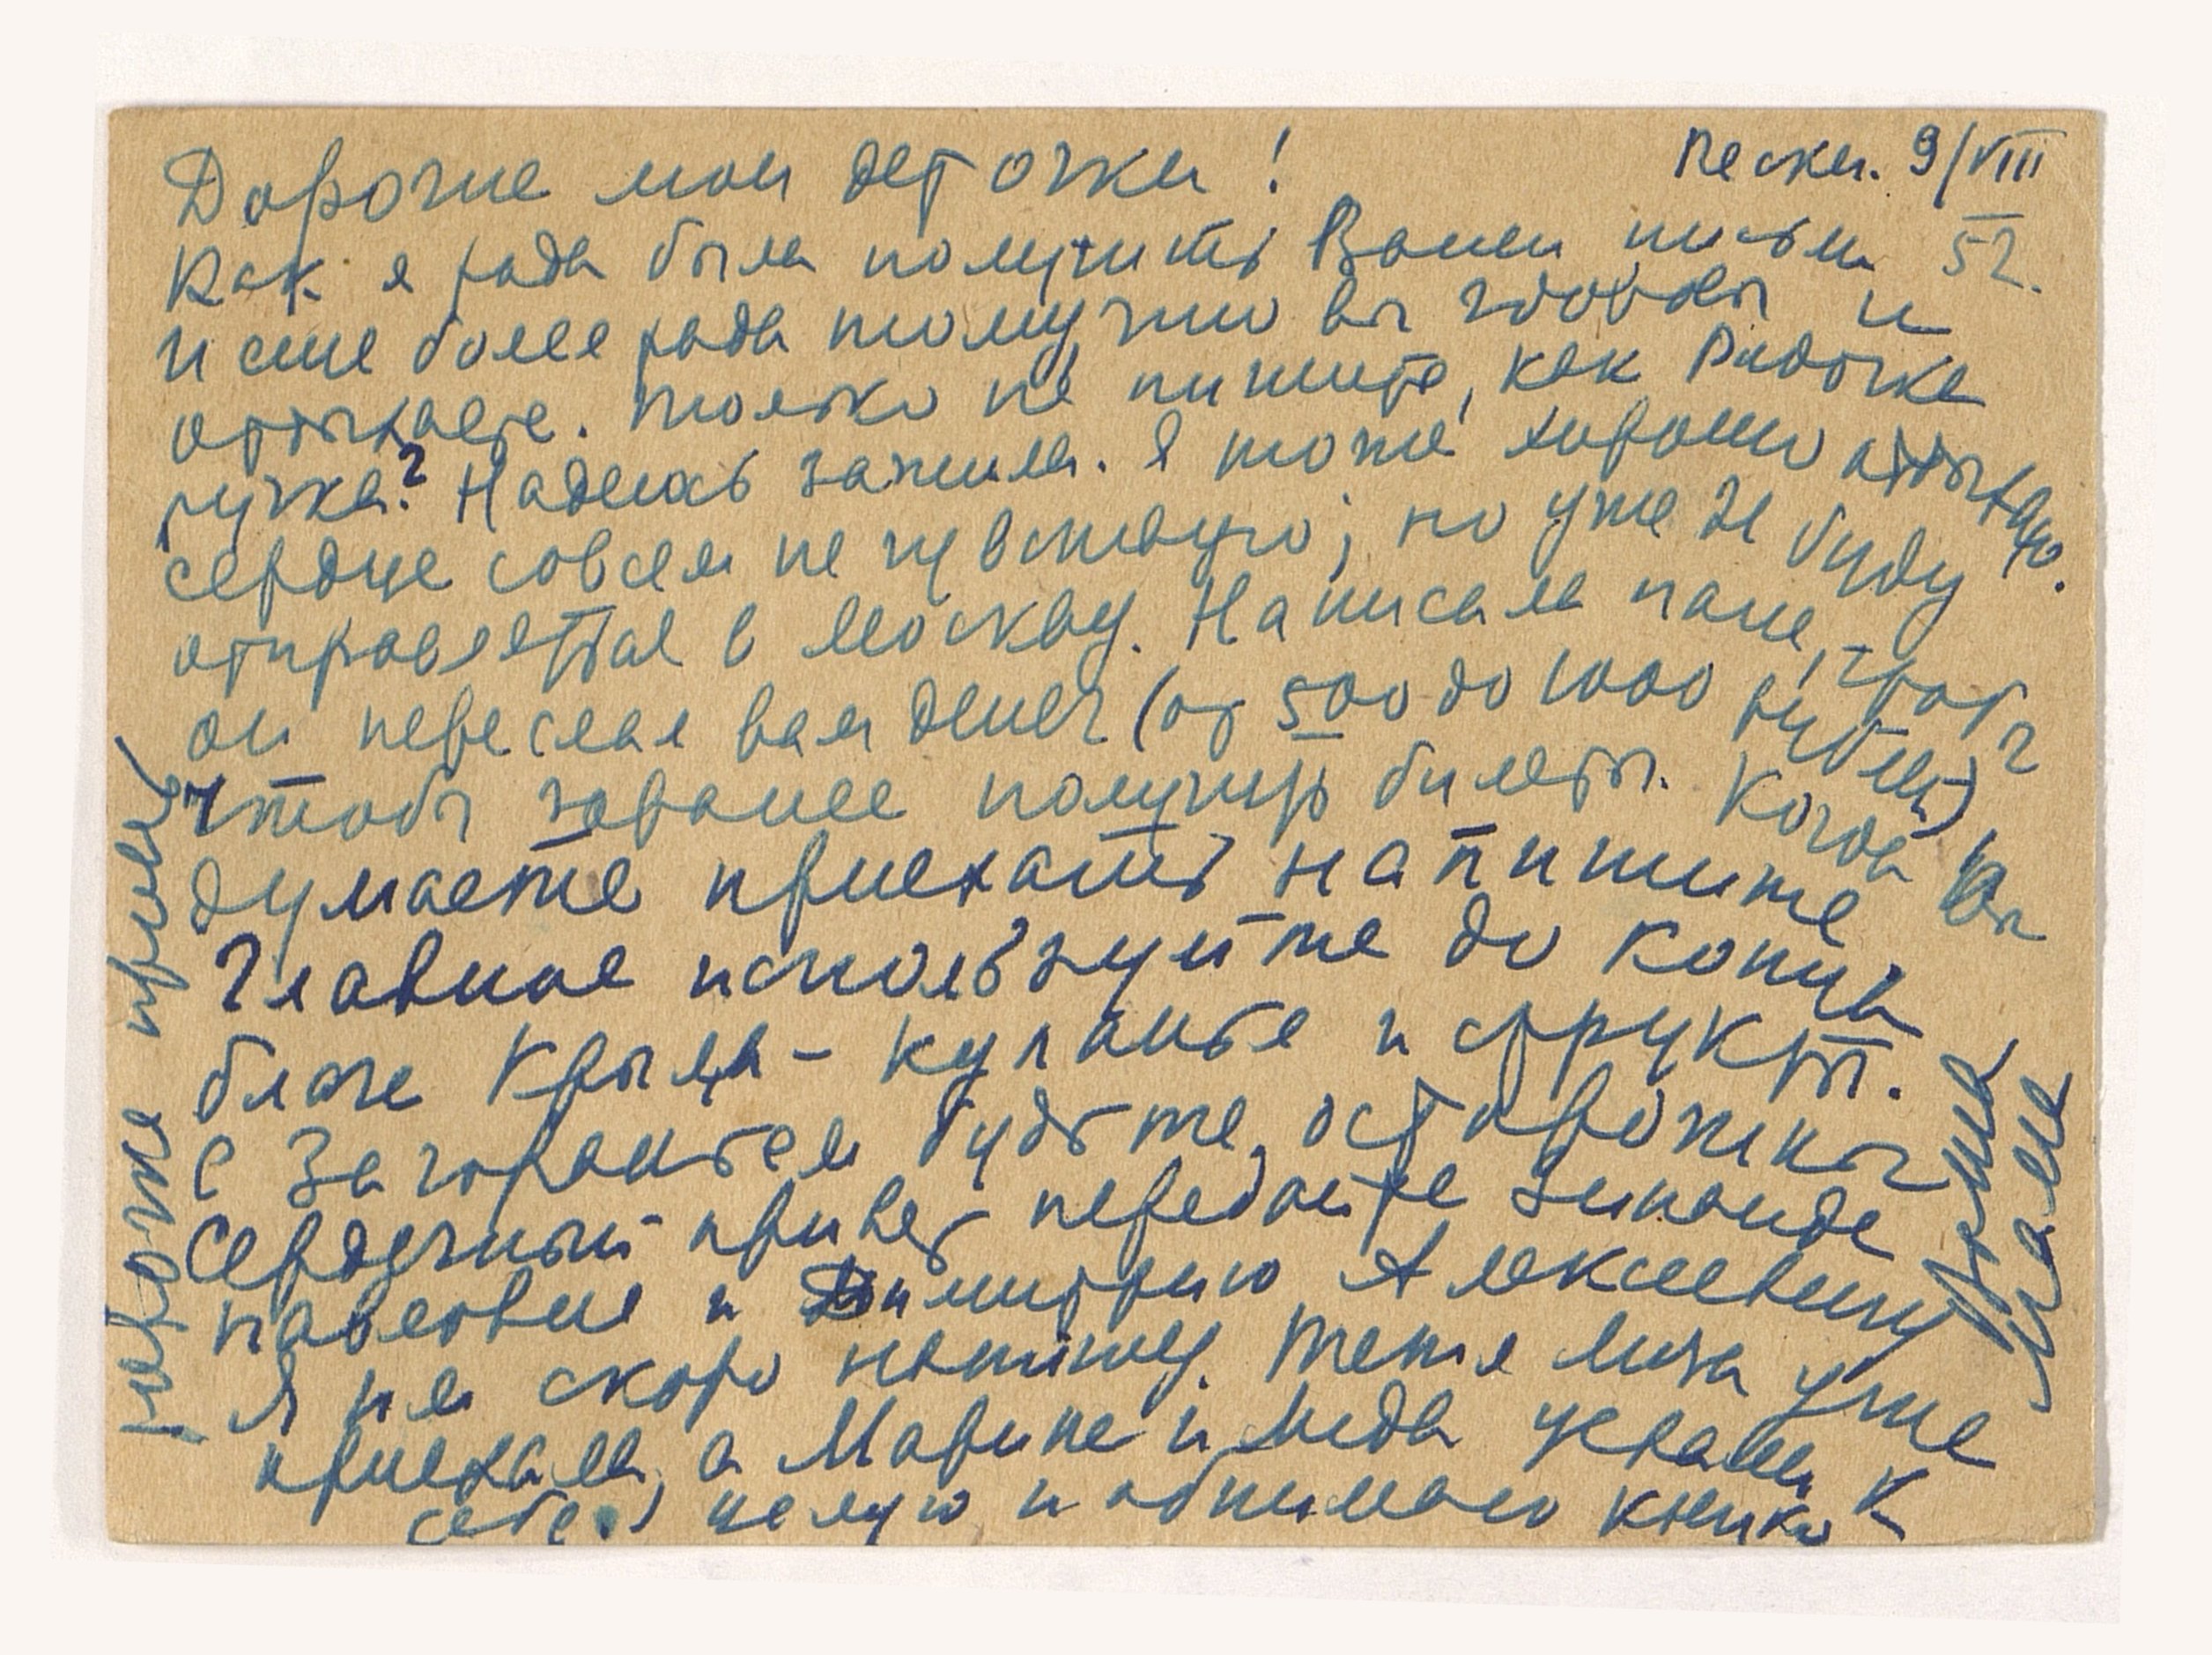 Пески. 9/VIII
52.
Дорогие мои деточки!
Как я рада была получить Ваши письма
и еще более рада тому, что вы здоровы и
отдыхаете. Только не пишете, как Видочка
ручка? Надеюсь зажила. Я тоже хорошо отдыхаю.
сердце совсем не чувствую; но уже буду
отправляться в Москву. Написала папе, чтобы
он переслал вам денег (от 500 до 1000 рублей)
чтобы заранее получить билеты. Когда Вы
думаете приехать напишите
Главное используйте до конца
благо Крыма - купанье и фрукты.
С загораньем будьте осторожны
Сердечный привет передайте Зинаиде
Павловне и Димитрию Алексеевичу
Я им скоро напишу. Тетя Лиза уже
приехала, а Марина и Лида уехали к
себе. целую и обнимаю крепко
Ваша
мама